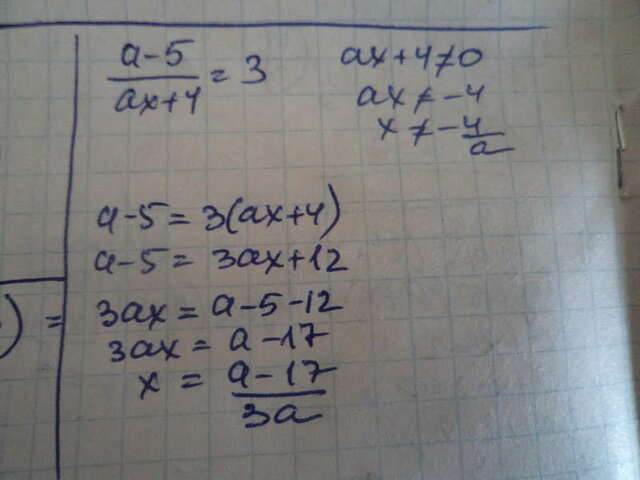 a-5/ax+4 = 3
ax+4≠0
ax≠-4
x≠-4/a
a-5=3(ax+4)
a-5=3ax+12
3ax=a-5-12
) =
3ax=a-17
x=a-17/3a